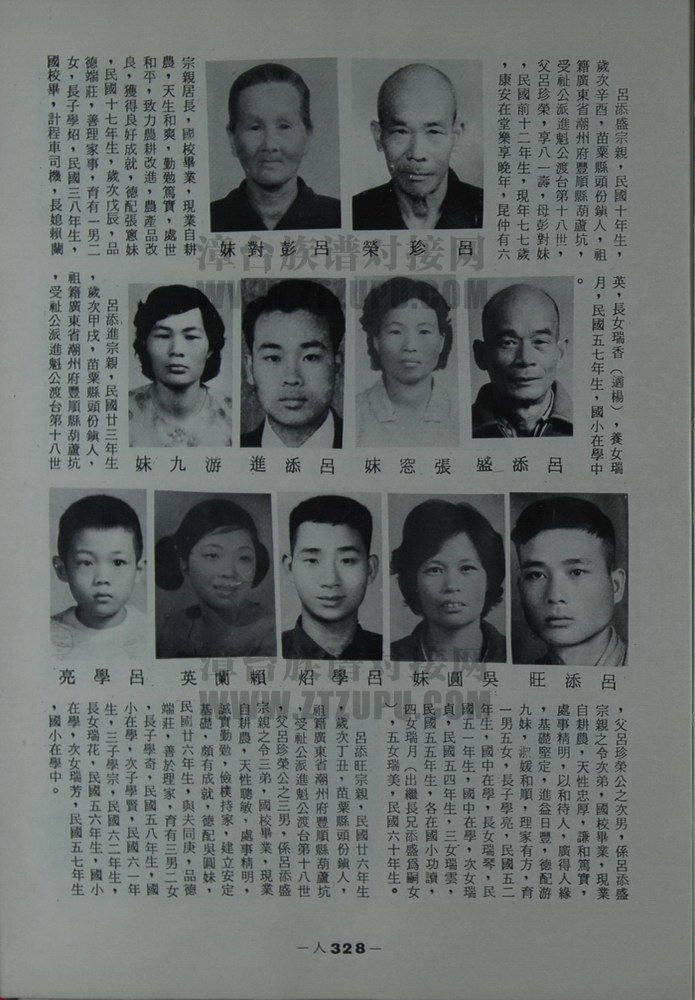 呂添盛宗親，民國十年生，
歲次辛酉，苗栗縣頭份鎮人，祖
籍廣東省潮州府豐順縣葫蘆坑
受祉公派進魁公渡台第十八世，
父呂珍榮，享八一壽，母彭對妹
，民國前十二年生，現年七七歲
，康安在堂樂享晚年，昆仲有六
呂珍榮
呂彭對妹
宗親居長，國校畢業，現業自耕
農，天生和爽，勤勉篤實，處世
和平，致力農耕改進，農產品改
良，獲得良好成就，德配張窻妹
，民國十七年生，歲次戊辰，品
德端莊，善理家事，育有一男二
女，長子學炤，民國三八年生，
國校畢，計程車司機，長媳賴蘭
英，長女瑞香（適楊），養女瑞
月，民國五七年生，國小在學中
。
呂添盛
張窓妹
呂添進
游九妹
呂添進宗親，民國廿三年生
，歲次甲戌，苗栗縣頭份鎮人，
祖籍廣東省潮州府豐順縣葫蘆坑
，受祉公派進魁公渡台第十八世
呂添旺
吳圓妹
呂學炤
賴蘭英
呂學亮
，父呂珍榮公之次男，係呂添盛
宗親之令次弟，國校畢業，現業
自耕農，天性忠厚，謙和篤實，
處事精明，以和待人，廣得人緣
，基礎堅定，進益日豐，德配游
九妹，淑媛和順，理家有方，育
一男五女，長子學亮，民國五二
年生，國中在學，長女瑞琴，民
國五一年生，國中在學，次女瑞
貞，民國五四年生，三女瑞雲，
民國五五年生，各在國小功讀，
四女瑞月（出繼長兄添盛爲嗣女
）五女瑞美，民國六十年生。
呂添旺宗親，民國廿六年生
，歲次丁丑，苗栗縣頭份鎮人，
祖籍廣東省潮州府豐順縣葫蘆坑
，受祉公派進魁公渡台第十八世
，父呂珍榮公之三男，係呂添盛
宗親之令三弟，國校畢業，現業
自耕農，天性聰敏，處事精明，
誠實勤勉，儉樸持家，建立安定
基礎，頗有成就，德配吳圓妹，
民國廿六年生，與夫同庚，品德
端莊，善於理家，育有三男二女
，長子學奇，民國五八年生，國
小在學，次子學賢，民國六一年
生，三子學宗，民國六二年生，
長女瑞花，民國五六年生，國小
在學，次女瑞芳，民國五七年生
，國小在學中。
—人328—
漳台族谱对接网
WWW.ZTZUPU.COM
漳台族谱对接网
WWW.ZTZUPU.COM